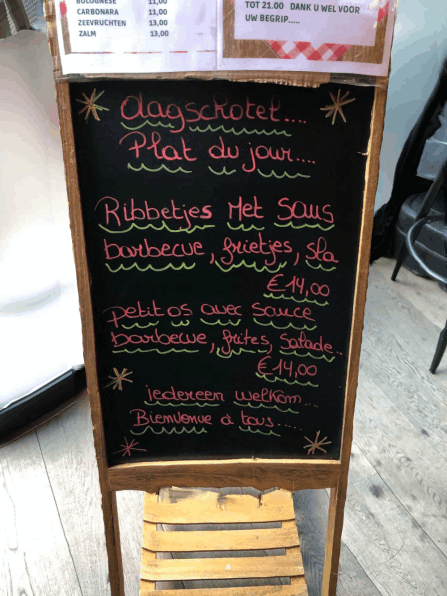 BOLOGNESE 11,00
CARBONARA 11,00
ZEEVRUCHTEN 13,00
ZALM 13,00
TOT 21.00 DANK U WEL VOOR
UW BEGRIP.....
dagschotel....
Plat du jour....
Ribbetjes Met Saus
barbecue, frietjes, sla
€14,00
petit os avec sauce
barbecue, frites, salade..
€14,00
iedereen welkom....
Bienvenue à tous.....